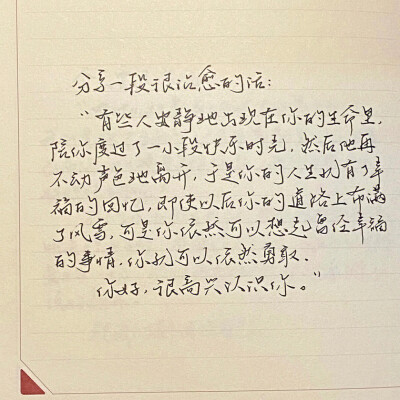 分享一段很治愈的话：
“有些人安静地出现在你的生命里，
陪你度过了一小段快乐时光，然后他再
不动声色地离开，于是你的人生就有了幸
福的回忆，即使以后你的道路上布满
了风雪，可是你依然可以想起曾经幸福
的事情，你就可以依然勇敢．
你好，很高兴认识你。”